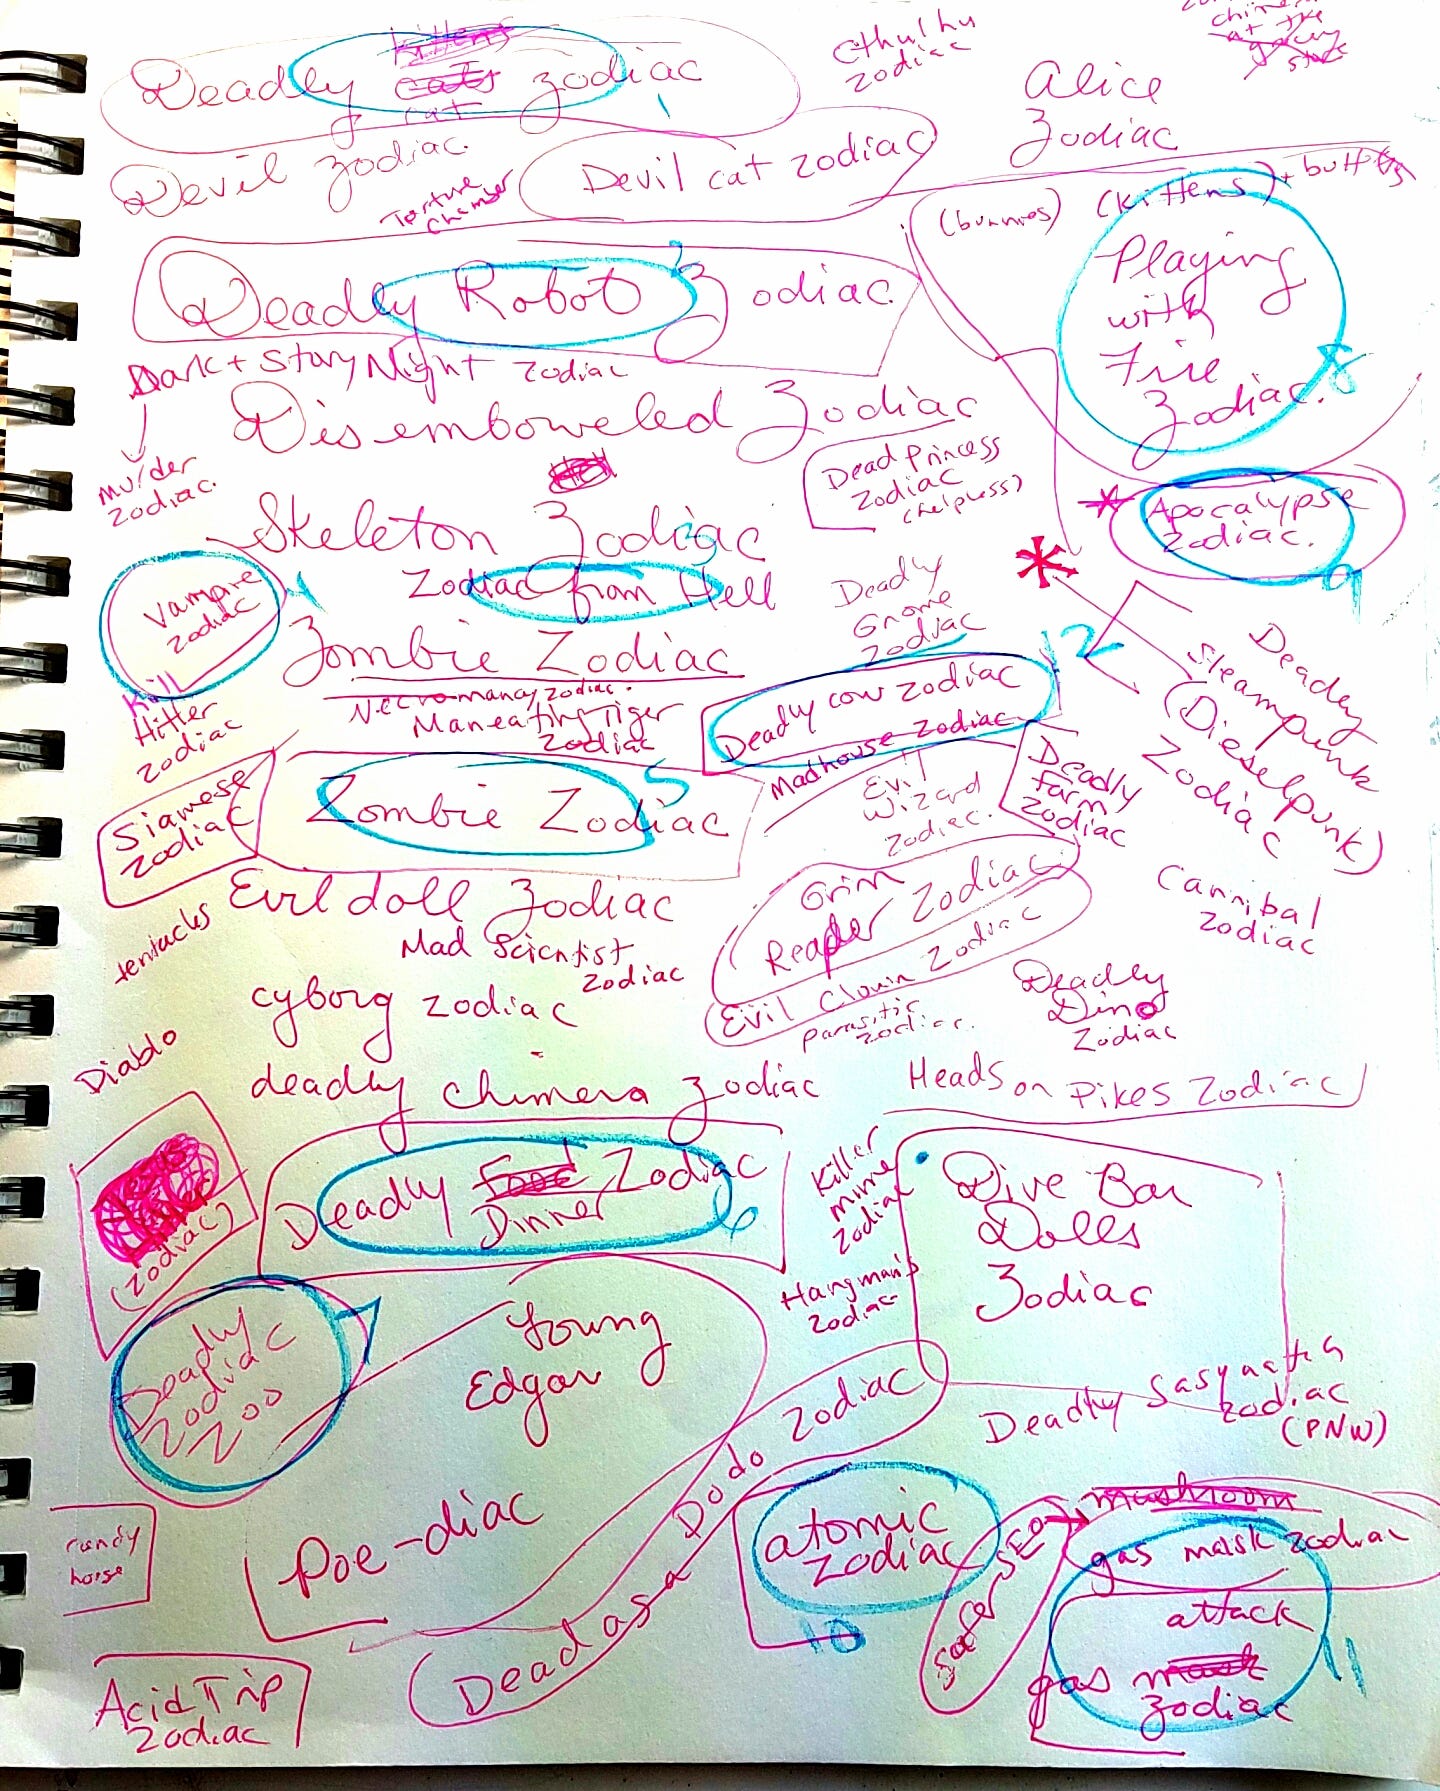 Deadly kittens cats cat zodiac
1
Cthulhu
zodiac
chimera
at the
grocery
store
Alice
Zodiac
Devil zodiac.
Torture
chamber
Devil cat zodiac
(bunnies) (kittens) + buttons
Playing
with
Fire
Zodiac.
8
Deadly Robot Zodiac.
2
Dark + Story Night zodiac
murder
zodiac.
Disemboweled Zodiac
Dead Princess
Zodiac
(helpless)
* Apocalypse
Zodiac.
9
Skeleton Zodiac
3
Zodiac from Hell
Vampire
zodiac
4
Kill
Hitler
zodiac
Zombie Zodiac
Necromancy zodiac.
Maneating Tiger
zodiac
Deadly
Gnome
zodiac
*
12
Deadly cow zodiac
Madhouse zodiac
Evil
Wizard
zodiac.
Deadly
Farm
zodiac
Deadly
Steampunk
(Dieselpunk)
Zodiac
Siamese
zodiac
Zombie Zodiac
5
Evil doll Zodiac
Mad Scientist
zodiac
Grim
Reaper Zodiac
Evil Clown Zodiac
parasitic
zodiac.
Cannibal
zodiac
tentacles
cyborg zodiac
Deadly
Dino
Zodiac
Diablo
deadly chimera zodiac
Heads on Pikes Zodiac
(zodiac)
Deadly Food Zodiac
Dinner
6
Killer
mime
zodiac
Dive Bar
Dolls
Zodiac
Hangman's
zodiac
Deadly
Zodiac
Zoo
7
Young
Edgar
Poe-diac
Dead as a Dodo Zodiac
Deadly Sasquatch
zodiac
(PNW)
candy
horse
atomic
zodiac
10
safer SEO
mushroom
gas mask zodiac
attack
gas mask
zodiac
11
Acid Trip
zodiac